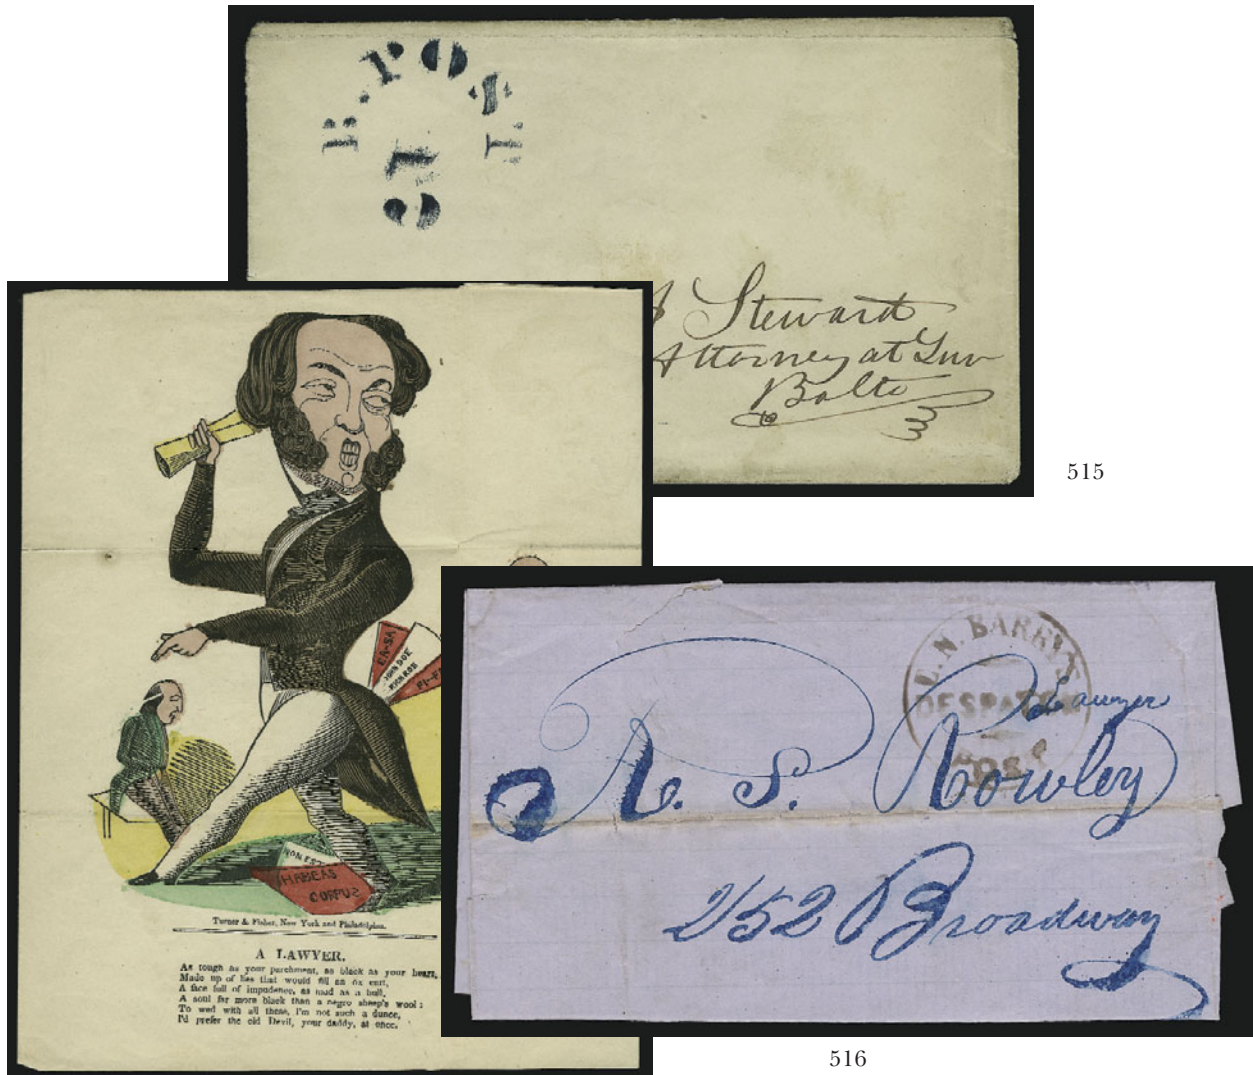 B. POST
21
Steward
Attorney at Law
Balto
515
CA-SA
JOHN DOE
RICH ROE
FI-FA
NON EST
HABEAS
CORPUS
Turner & Fisher, New York and Philadelphia.
A LAWYER.
As tough as your parchment, as black as your heart,
Made up of lies that would fill an ox cart,
A face full of impudence, as mad as a bull,
A soul far more black than a negro sheep's wool:
To wed with all these, I'm not such a dunce,
I'd prefer the old Devil, your daddy, at once.
E. N. BARRY'S
DESPATCH
POST
Lawyer
A. S. Rowley
252 Broadway
516